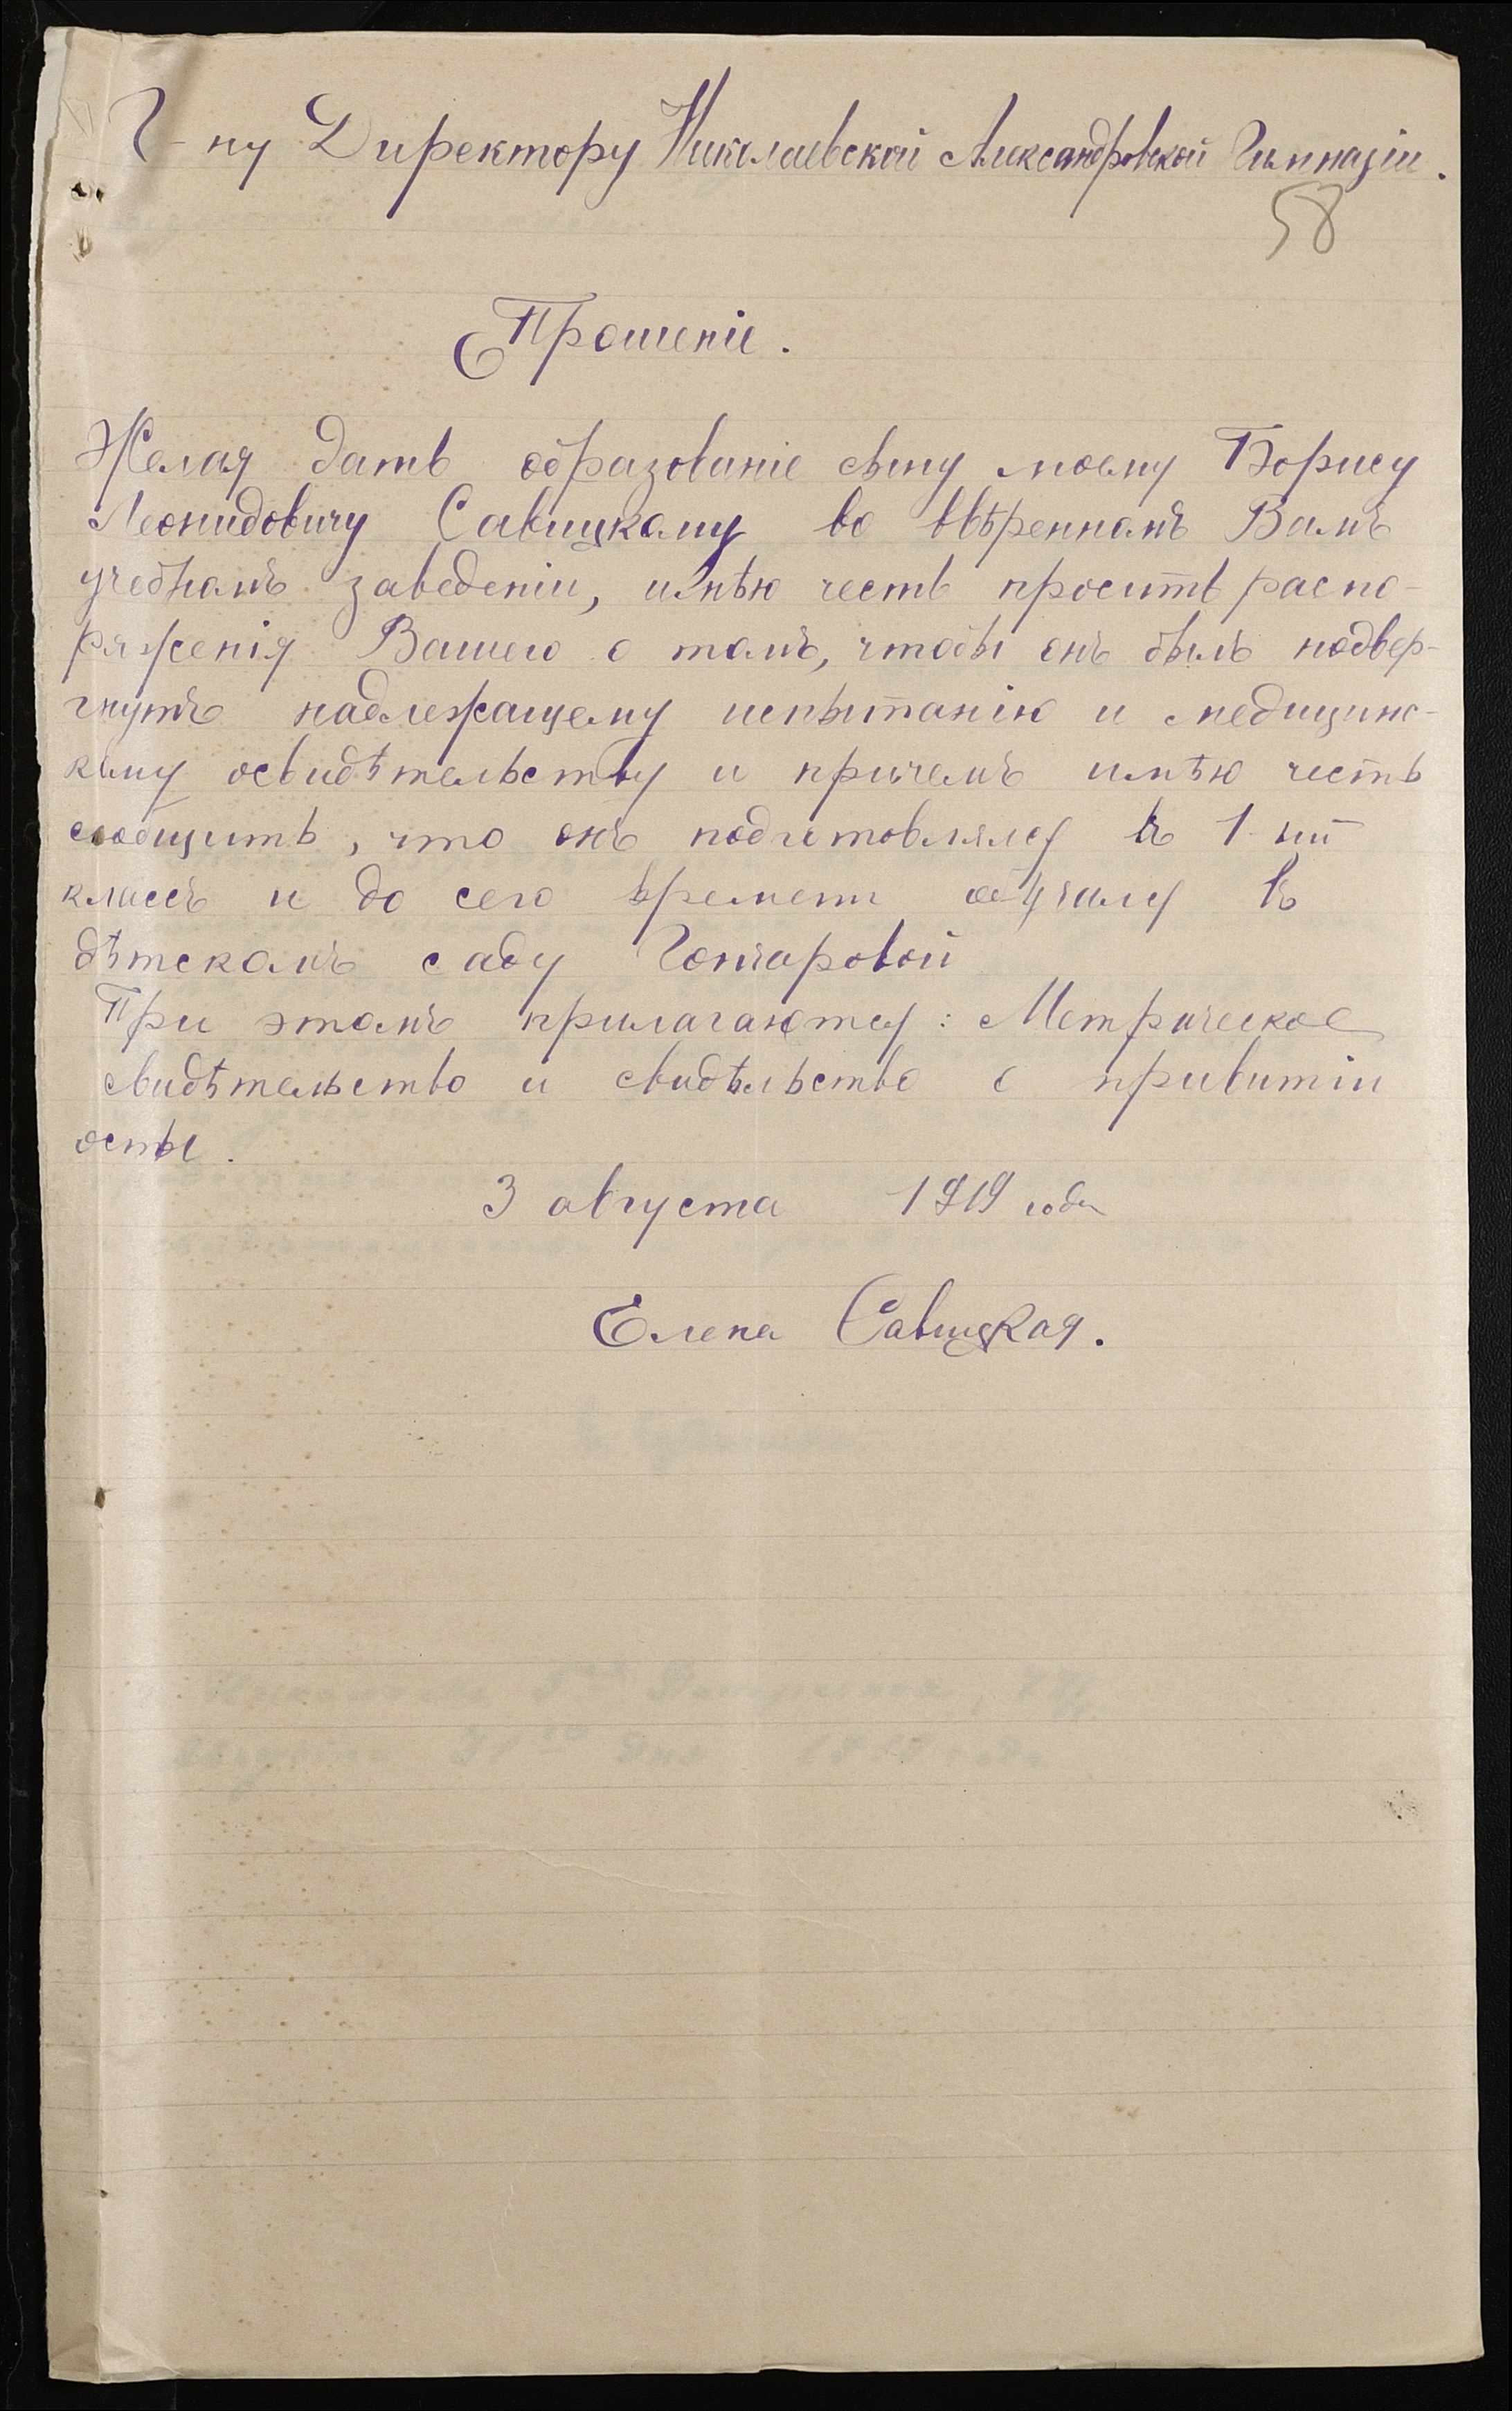 Г-ну Директору Николаевской Александровской Гимназіи.
58
Прошеніе.
Желая дать образованіе сыну моему Борису
Леонидовичу Савицкому во ввѣренномъ Вамъ
учебномъ заведеніи, имѣю честь просить распо-
ряженія Вашего о томъ, чтобы онъ былъ подвер-
гнутъ надлежащему испытанію и медицинс-
кому освидѣтельству и причемъ имѣю честь
сообщить, что онъ подготовлялся въ 1-ый
классъ и до сего времени обучался въ
дѣтскомъ саду Гончаровой
При этомъ прилагаются: Метрическое
свидѣтельство и свидѣльство о привитіи
оспы.
3 августа 1919 года
Елена Савицкая.